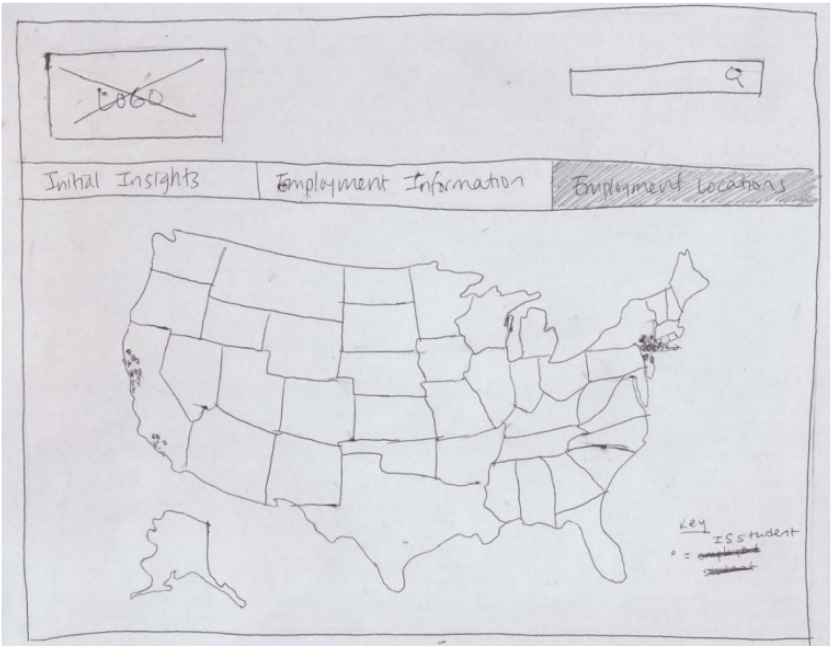 LOGO
Initial Insights
Employment Information
Employment Locations
Key
IS student
° = employed
student